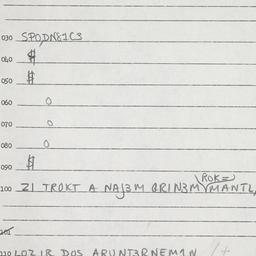 030 SPODN81C3
040 $
050 $
060 0
070 0
080 0
090 $
ROK=
100 21 TROKT A NAJ3M GRIN3M MANTL,
110 LOZ IR DOS ARUNT3RNEM1N